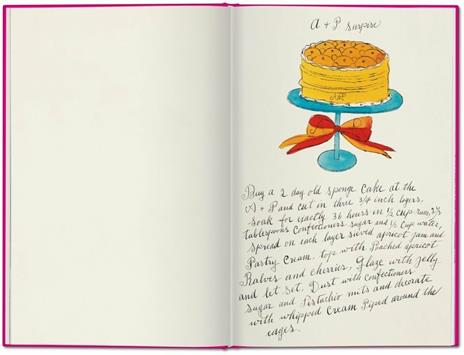 A + P surprise
A+P
Buy a 2 day old sponge cake at the
A + P and cut in three 3/4 inch layers.
Soak for exactly 36 hours in 1/2 cup rum, 2 1/2
tablespoons Confectioners sugar and 1/2 Cup water,
spread on each layer sieved apricot jam and
Pastry Cream. top with Poached apricot
Halves and cherries. Glaze with jelly
and let set. Dust with Confectioners
sugar and Pistachio nuts and decorate
with whipped Cream Piped around the
edges.